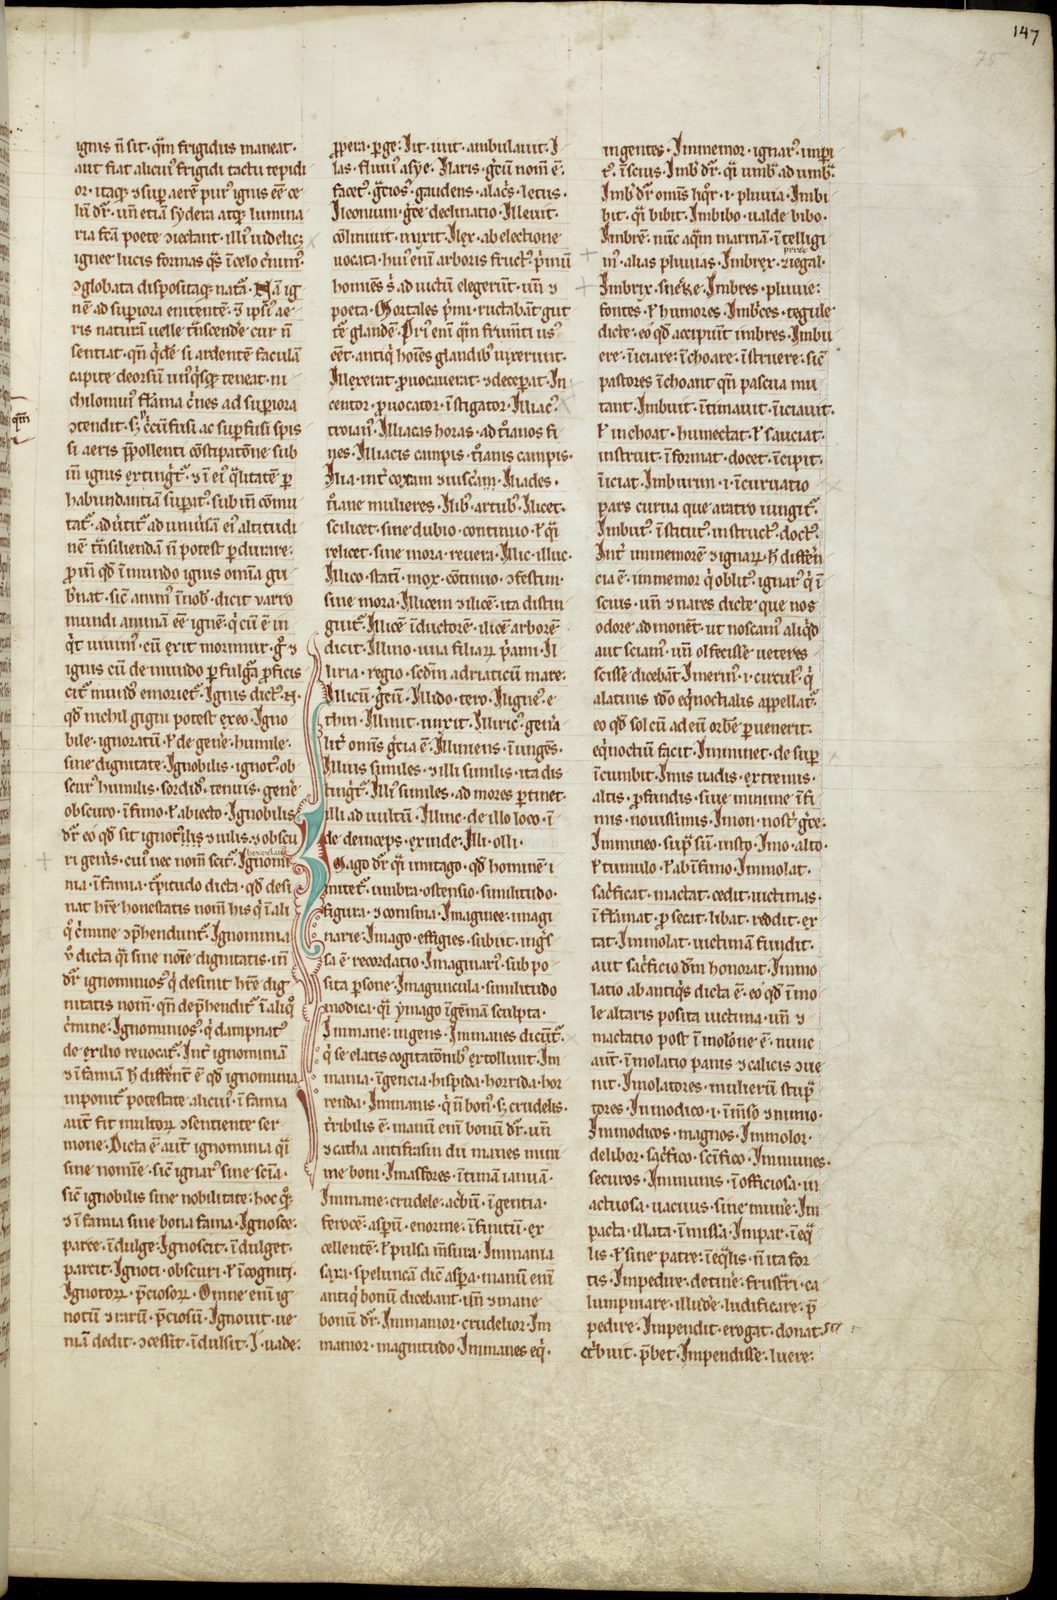 147
75
ignis n̄ sit · qm̄ frigidus maneat ·
aut fiat alicuiꝰ frigidi tactu tepidi
or · itaqꝫ ⁊ suꝑ aerē purꝰ ignis eē ce
lū dr̄ · un̄ etiā sydera atqꝫ lumina
ria fc̄a poete iectant · illiꝰ uidelicꝫ
ignee lucis formas
ↄglobata dispositaqꝫ natā · Nā ig
nē ad superiora enitentē ·
ris naturā uelle tn̄scende cur n̄
sentiat · qn̄ si ardentē faculā
capite deorsū teneat · ni
chilominꝰ flāma c̄nes ad suꝑiora
ↄtendit · ac suꝑfusi spis
si aeris p̄pollenti cōstipatōne sub
habundantiā suꝑatꝰ · sub in cōmu
nē tn̄siliendā n̄ potest ꝑdurare ·
ꝓin̄ qd̄ ī mundo ignis om̄ia gu
b̄nat · sic̄ animꝰ ī nob̄ · dicit varro
mundi animā eē ignē · q̇ cū ē in
q̇t uiuimꝰ · cū exit morimur · gͦ ⁊
ignis cū de mundo ꝑ fulgā ꝓficis
citꝰ mundꝰ emorietꝰ · Ignis dictꝰ ·
qd̄ nichil gigni potest ex eo · Igno
bile · ignoratū · ł de gene · humile ·
sine dignitate · Ignobilis · ignotꝰ · ob
scurꝰ humilis · sordidꝰ · tenuis · genē
obscuro · ī fimo · ł abiecto · Ignobilis
dr̄ eo qd̄ sit ignotꝰ ⁊ uilis · ⁊ obscu
ri geniꝰ · cuiꝰ nec nom̄ scitꝰ · Ignomi
nia · ī famia · tꝑitudo dicta · qd̄ desi
nat hr̄e honestatis nom̄ his q̇ ī ali
qͦ c̄mine ꝯp̄hendunt · Ignominia
dicta qͣi sine noīe dignitatis · un̄
dr̄ ignominiosꝰ q̇ desinit hr̄e dig
nitatis nom̄ · qn̄ dep̄hendit ī aliqͦ
c̄mine · Ignominiosꝰ · q̇ dampnatꝰ
de exilio reuocatꝰ · Int̄ ignominiā
⁊ ī famiā h̄ differt ē qd̄ ignominia
inponitꝰ potestate alicuiꝰ · ī famia
aūt fit multoꝝ ↄsentiente ser
mone · Dicta ē aūt ignominia qͣi
sine nomīe · sic̄ ignarꝰ sine scīa ·
sic̄ ignobilis sine nobilitate · hoc qͦꝫ
⁊ ī famia sine bona fama · Ignosce ·
parce · ī dulge · Ignoscit · ī dulget ·
parcit · Ignoti · obscuri · ł ī cogniti ·
Ignotoꝝ · p̄ciosoꝝ · Omne enī ig
notū ⁊ rarū · p̄ciosū · Ignouit · ue
niā dedit · ↄcessit · ī dulsit · I · uade ·
ꝓpera · ꝑge · Iit · iuit · ambulauit · I
las · fluuiꝰ asye · Ilaris · gc̄ū nom̄ ē ·
facetꝰ · gc̄iosꝰ · gaudens · alac̄s · letus ·
Iconium · gc̄e declinatio · Illeuit ·
cōlinuit · unxit · Ilex · ab electione
uocata · huiꝰ enī arboris fructꝰ · p̄mū
homīes s̄ ad uictū elegerūt · un̄ ⁊
poeta · Mortales p̄mi · ructabāt gut
tē glandē · Priꝰ enī qm̄ frum̄ti usꝰ
eēt · antiq̇ hoīes glandibꝰ uixerunt ·
Illexerat · ꝓuocauerat · ⁊ decepat · In
centor · ꝓuocator · ī stigator · Illiacꝰ
troianꝰ · Illiacas horas · ad tr̄ianos fi
nes · Illiacis campis · tr̄ianis campis ·
Ilia · int̄ coxam ⁊ uisc̄am · Iliades ·
tr̄iane mulieres · Ilibꝰ · artubꝰ · Ilicet ·
scilicet · sine dubio · continuo · ł qͣi
relicet · sine mora · reuera · Illic · illuc ·
Illico · statī · mox · cōtinuo · ↄfestim ·
sine mora · Illicem ⁊ ilicē · ita distin
guit · Illicē · ī ductorē · ilicē arborē
dicit · Illino · una filiaꝝ p̄ami · Il
liria · regio · sedm̄ adriaticū mare ·
Illicū · gc̄ū · Illido · tero · Ilignꝰ · e
thin · Illinit · unxit · Illiricꝰ · genā
lit̄ omis gc̄ia ē · Illimens · ī ungēs ·
Illius similes · ⁊ illi similis · ita dis
tingt · Illiꝰ similes · ad mores ꝑtinet ·
illi ad uultū · Illinc · de illo loco · ī
de deinceps · exinde · Illi · olli ·
Imago dr̄ qͣi imitago · qd̄ hominē i
mitetꝰ · umbra · ostensio · similitudo ·
figura · ⁊ consina · Imaginee · imagi
narie · Imago · effigies · subit · ings̄
sa ē recordatio · Imaginariꝰ · sub po
sita persone · Imaguncula · similitudo
modica · qͣi ymago ī gēmā sculpta ·
Immane · ingens · Immanes dicūt ·
q̇ se elatis cogitatōnibꝰ extollunt · Im
mania · ī gencia · hispida · horrida · hor
renda · Immanis · q̇ n̄ bonꝰ · sꝫ crudelis ·
tr̄ribilis ē · manū enī bonū dr̄ · un̄
⁊ catha antifrasin dii manes mini
me boni · Imassores · ī timā ianuā ·
Immane · crudele · ac̄bū · ī gentia ·
ferocē · aspū · enorme · ī finitū · ex
cellentē · ł pulsa m̄sura · Immania
saxa · speluncā dic̄ aspa · manū enī
antiq̇ bonū dicebant · un̄ ⁊ mane
bonū dr̄ · Immanior · crudelior · Im
manior · magnitudo · Immanes eq̇ ·
ingentes · Immemor · ignarꝰ · inꝑi
tꝰ · ī scius · Imb̄ dr̄ · qͣi umbꝰ ad umbͣ ·
Imb̄ dr̄ · omīs hqr̄ · i · pluuia · Imbi
bit · qͣi bibit · Imbibo · ualde bibo ·
Imbrē · nūc aqͣm marinā · ī telligi
mꝰ · alias pluuias · Imbrex · ⁊ iegal ·
Imbrix · Imbres · pluuie ·
fontes · ł humores · Imbrices · tegule
dicte · eo qd̄ accipiūt imbres · Imbu
ere · ī iciare · ī choare · ī struere · sic̄
pastores ī choant qn̄ pascua mu
tant · Imbuit · ī timauit · ī iciauit ·
ł inchoat · humectat · ł sauciat ·
instruit · ī format · docet · īcipit ·
ī iciat · Imburum · i · ī curuatio
pars curua que aratro iungitꝰ ·
Imbutꝰ · ī stitutꝰ · instructꝰ · doctꝰ ·
Int̄ immemorē ⁊ ignaꝝ h̄ differē
cia ē · immemor q̇ oblitꝰ · ignarꝰ q̇ ī
scius · un̄ ⁊ nares dicte que nos
odore admonēt · ut noscamꝰ aliq̇d
aut sciamꝰ · un̄ olfecisse ueteres
scisse dicebāt · Imerinꝰ · i · circulꝰ · q̇
alatinus ido eq̇noctialis appellatꝰ ·
eo qd̄ sol cū ad eū orbē ꝑuenerit ·
eq̇noctiū facit · Imminet · de suꝑ
ī cumbit · Imis uadis · extremis ·
altis · ꝓfundis · siue minime · ī fi
mis · nouissimis · Imon · nostr̄ gc̄e ·
Immineo · supͣ sū · insto · Imo · alto ·
ł tumulo · ł ab ī fimo · Immolat ·
sac̄ficat · mactat · cedit · uictimas ·
ī flāmat · ꝓsecat · libat · reddit · ex
tat · Immolat · uictimā fundit ·
aut sac̄ficio dm̄ honorat · Immo
latio ab antiq̇s dicta ē · eo qd̄ ī mo
le altaris posita uictima · un̄ ⁊
mactatio post ī molōne ē · nunc
aūt · ī molatio panis ⁊ calicis ↄue
nit · Imolatores · mulierū strup̄
tores · Immodico · i · ī mēso ⁊ nimio ·
Immodicos · magnos · Immolor ·
delibor · sac̄fico · sc̄ifico · Immunes ·
securos · Immunis · ī officiosa · in
actuosa · uacuus · sine munē · Im
pacta · illata · ī missa · Impar · ī eq̄
lis · ł sine patre · ī eq̄lis · n̄ ita for
tis · Impedire · detinē · frustr̄i · ca
lumpniare · illudē · ludificare · p̄
pedire · Impendit · erogat · donat ·
c̄buit · p̄bet · Impendisse · luere ·